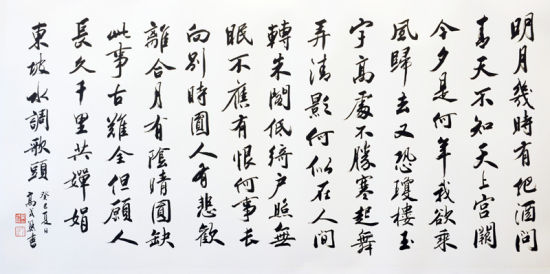 明月幾時有把酒問
青天不知天上宮闕
今夕是何年我欲乘
風歸去又恐瓊樓玉
宇高處不勝寒起舞
弄清影何似在人間
轉朱閣低綺戶照無
眠不應有恨何事長
向別時圓人有悲歡
離合月有陰晴圓缺
此事古難全但願人
長久千里共嬋娟
東坡水調歌頭
癸巳夏日
高書